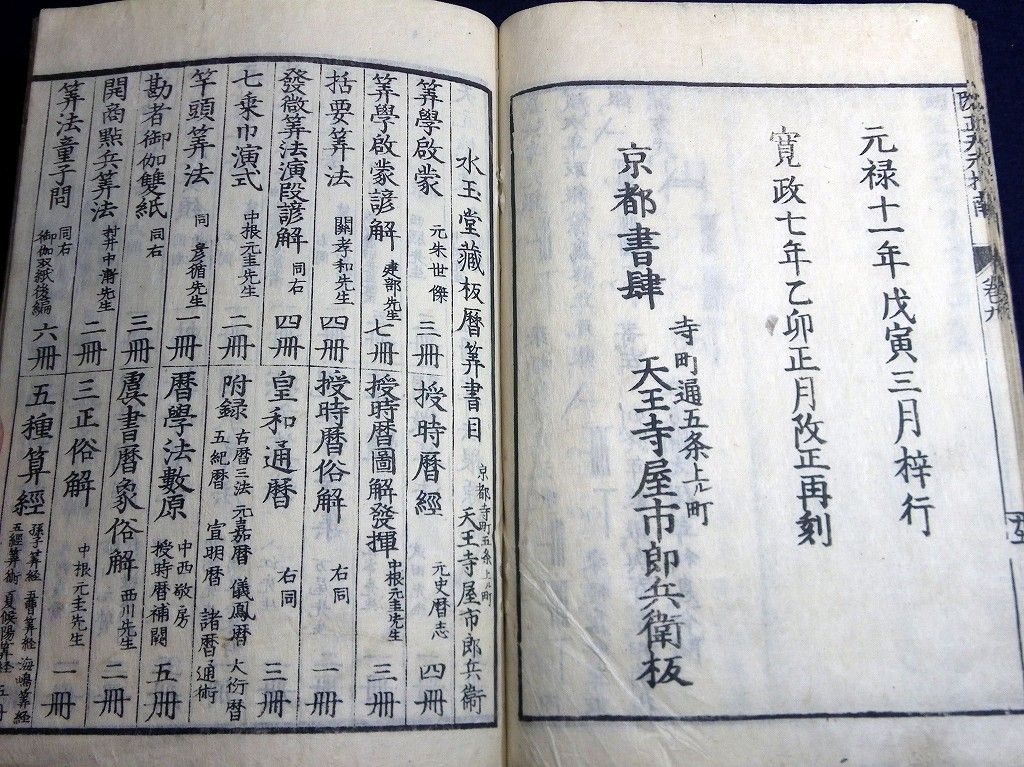 元禄十一年戊寅三月梓行
寛政七年乙卯正月改正再刻
寺町通五条上ル町
京都書肆 天王寺屋市郎兵衛板
水玉堂藏板暦筭書目 京都寺町五条上ル町 天王寺屋市郎兵衛
筭學啟蒙 元朱世傑 三冊
授時暦經 元史暦志 四冊
筭學啟蒙諺解 建部先生 七冊
授時暦圖解發揮 中根元圭先生 三冊
括要筭法 關孝和先生 四冊
授時暦俗解 右同 一冊
發微筭法演段諺解 同右 四冊
皇和通暦 右同 三冊
七乗巾演式 中根元圭先生 二冊
附録 古暦三法 元嘉暦 儀鳳暦 大衍暦
五紀暦 宣明暦 諸暦通術
竿頭筭法 同 彦循先生 一冊
暦學法數原 中西敬房 授時暦補闕 五冊
勘者御伽雙紙 同右 三冊
虞書暦象俗解 西川先生 二冊
開商點兵筭法 村井中漸先生 二冊
三正俗解 中根元圭先生 二冊
筭法童子問 同右 御伽双紙後編 六冊
五種算經 孫子筭経 五曹筭経 海嶋筭経
五經筭術 夏侯陽筭経 五冊 一冊
卷九